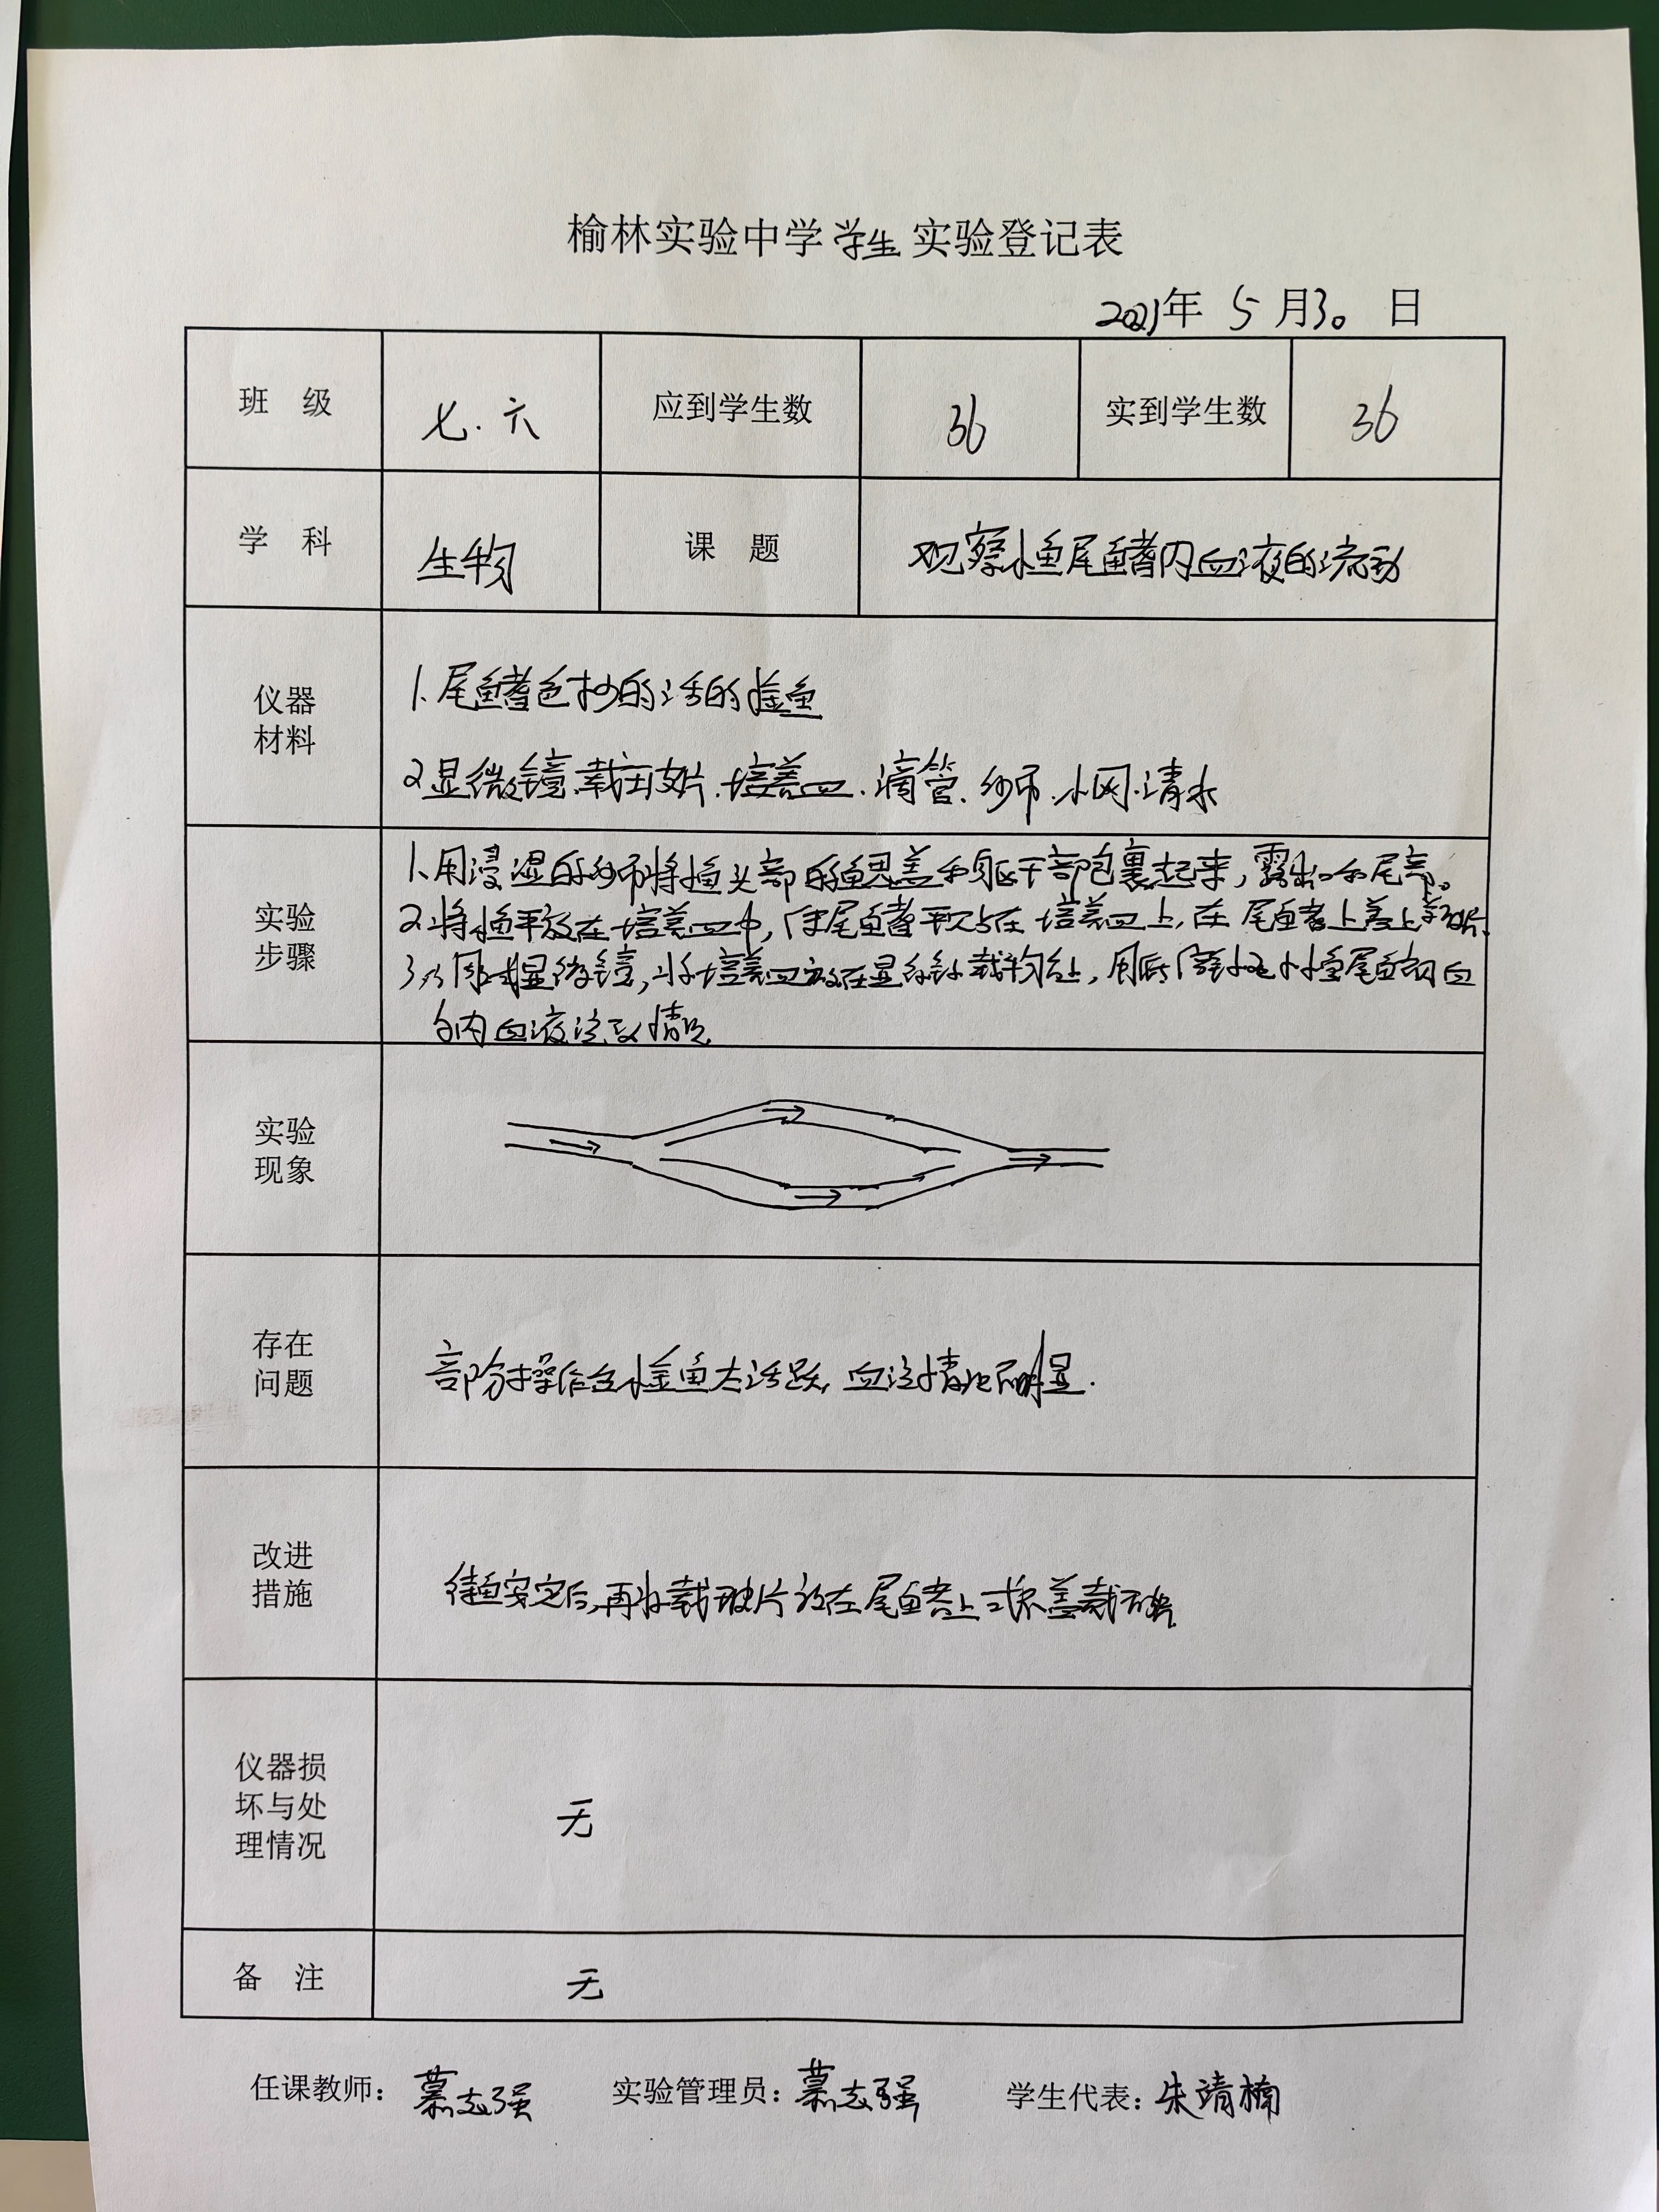 榆林实验中学学生实验登记表
2021年 5 月30 日
班 级 七.六 应到学生数 36 实到学生数 36
学 科 生物 课 题 观察小鱼尾鳍内血液的流动
仪器材料
1.尾鳍色少的活的小鱼
2.显微镜.载玻片.培养皿.滴管.纱布.小网.清水
实验步骤
1.用浸湿的纱布将小鱼头部的鳃盖和躯干部包裹起来,露出口和尾部。
2.将小鱼平放在培养皿中,使尾鳍平贴在培养皿上,在尾鳍上盖上载玻片.
3.调试显微镜,将培养皿放在显微镜载物台上,用低倍镜观察小鱼尾鳍血
管内血液流动情况
实验现象
存在问题
部分操作台小金鱼太活跃,血流情况不明显.
改进措施
待鱼安定后,再将载玻片放在尾鳍上或不盖载玻片.
仪器损坏与处理情况
无
备 注
无
任课教师: 慕志强 实验管理员: 慕志强 学生代表: 朱靖楠